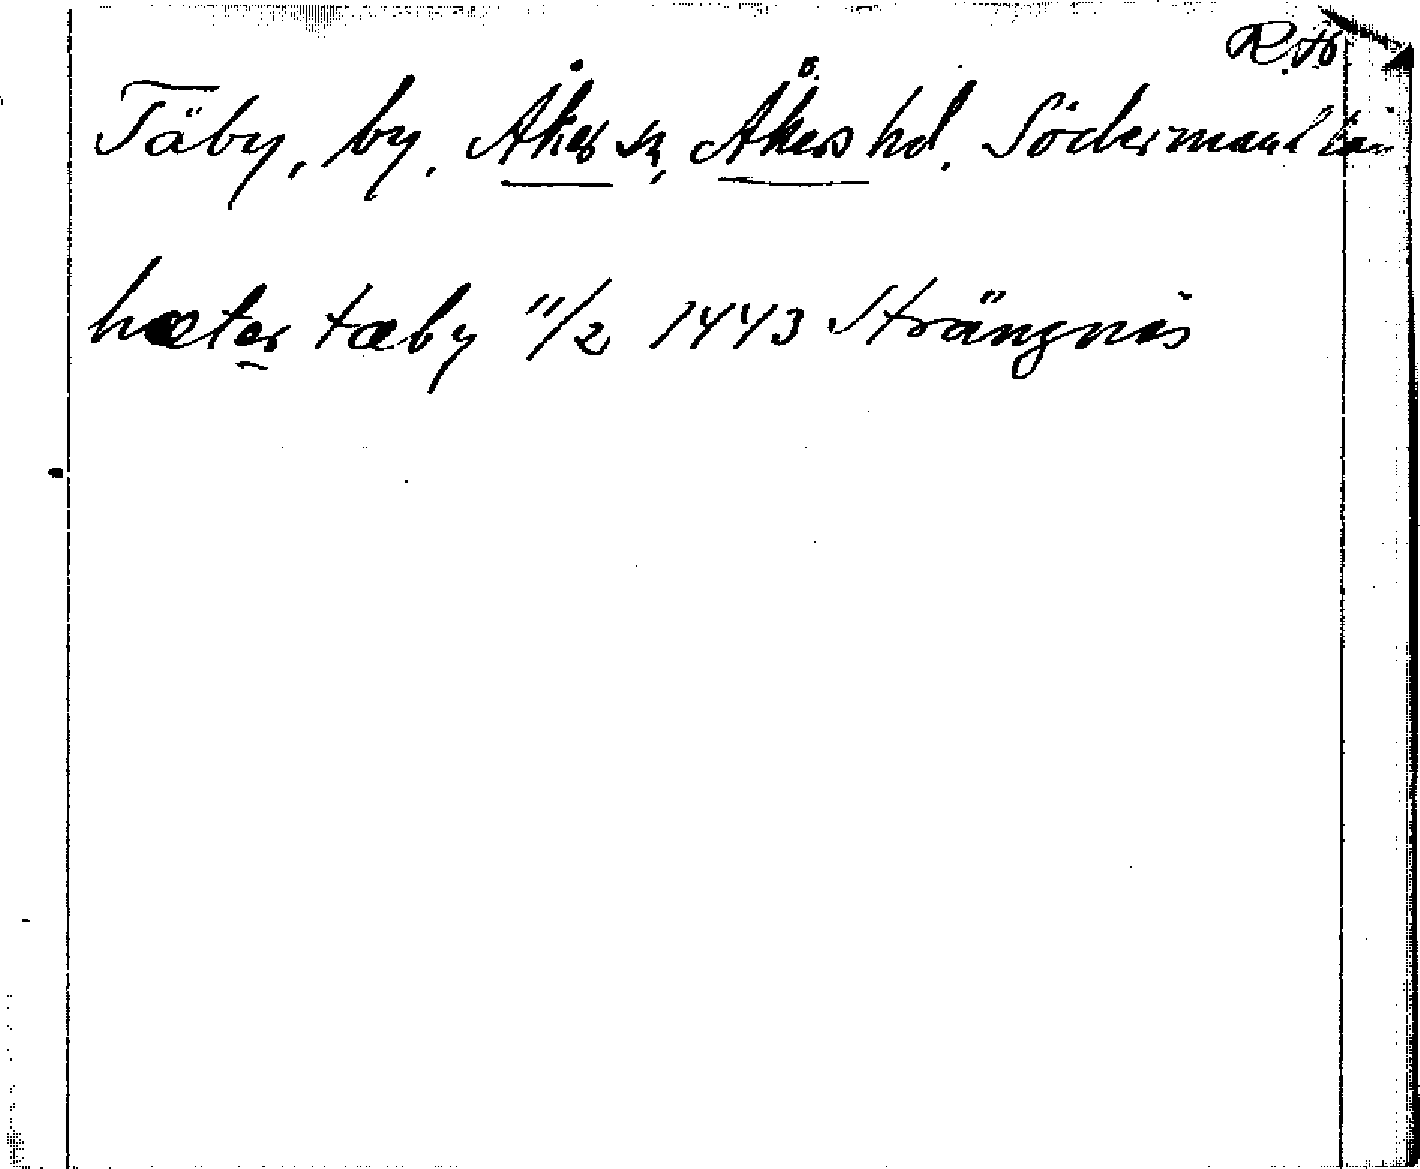 R.A.
Täby, by, Åker sn, Åkers hd. Södermanl län
hæter tæby 11/2 1443 Strängnäs